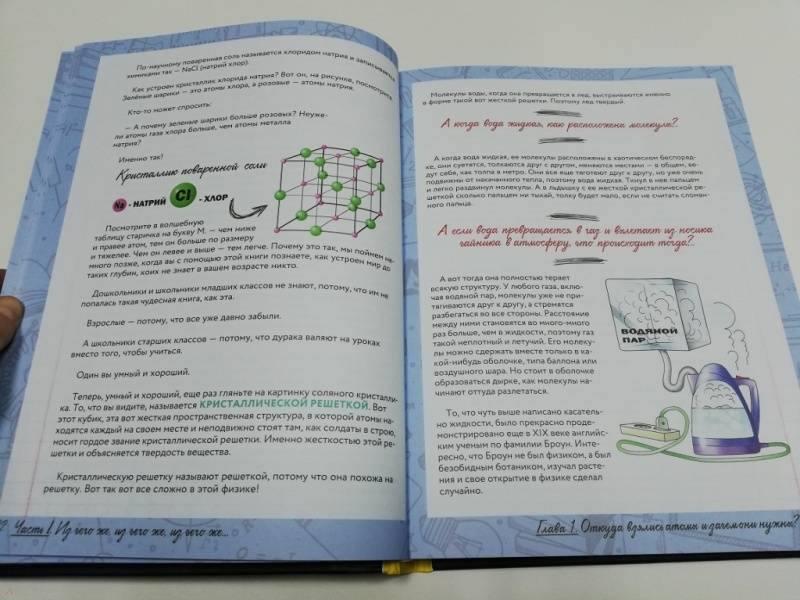 По-научному поваренная соль называется хлоридом натрия и записывается
химиками так — NaCl (натрий хлор).
Как устроен кристаллик хлорида натрия? Вот он, на рисунке, посмотрите.
Зелёные шарики — это атомы хлора, а розовые — атомы натрия.
Кто-то может спросить:
— А почему зеленые шарики больше розовых? Неуже-
ли атомы газа хлора больше, чем атомы металла
натрия?
Именно так!
Кристаллик поваренной соли
Na - НАТРИЙ Cl - ХЛОР
Посмотрите в волшебную
таблицу старичка на букву М. — чем ниже
и правее атом, тем он больше по размеру
и тяжелее. Чем он левее и выше — тем легче. Почему это так, мы поймем не-
много позже, когда вы с помощью этой книги познаете, как устроен мир до
таких глубин, коих не знает в вашем возрасте никто.
Дошкольники и школьники младших классов не знают, потому, что им не
попалась такая чудесная книга, как эта.
Взрослые — потому, что все уже давно забыли.
А школьники старших классов — потому, что дурака валяют на уроках
вместо того, чтобы учиться.
Один вы умный и хороший.
Теперь, умный и хороший, еще раз гляньте на картинку соляного кристалли-
ка. То, что вы видите, называется КРИСТАЛЛИЧЕСКОЙ РЕШЕТКОЙ. Вот
этот кубик, эта вот жесткая пространственная структура, в которой атомы на-
ходятся каждый на своем месте и неподвижно стоят там, как солдаты в строю,
носит гордое звание кристаллической решетки. Именно жесткостью этой ре-
шетки и объясняется твердость вещества.
Кристаллическую решетку называют решеткой, потому что она похожа на
решетку. Вот так вот все сложно в этой физике!
Часть 1. Из чего же, из чего же, из чего же...
Молекулы воды, когда она превращается в лед, выстраиваются именно
в форме такой вот жесткой решетки. Поэтому лед твердый.
А когда вода жидкая, как расположены молекулы?.
А когда вода жидкая, ее молекулы расположены в хаотическом беспоряд-
ке, они суетятся, толкаются друг с другом, меняются местами — в общем, ве-
дут себя, как толпа в метро. Они все еще тяготеют друг к другу, но уже очень
подвижны от накачанного тепла, поэтому вода жидкая. Тинул в нее пальцем
и легко раздвинул молекулы. А в льдышку с ее жесткой кристаллической ре-
шеткой сколько пальцем ни тыкай, толку будет мало, если не считать сломан-
ного пальца.
А если вода превращается в газ и вылетает из носика
чайника в атмосферу, что происходит тогда?.
А вот тогда она полностью теряет
всякую структуру. У любого газа, вклю-
чая водяной пар, молекулы уже не при-
тягиваются друг к другу, а стремятся
разбегаться во все стороны. Расстояние
между ними становятся во много-много
раз больше, чем в жидкости, поэтому газ
такой неплотный и летучий. Его молеку-
лы можно сдержать вместе только в ка-
кой-нибудь оболочке, типа баллона или
воздушного шара. Но стоит в оболочке
образоваться дырке, как молекулы на-
чинают оттуда разлетаться.
ВОДЯНОЙ
ПАР
То, что чуть выше написано касатель-
но жидкости, было прекрасно проде-
монстрировано еще в XIX веке английс-
ким ученым по фамилии Броун. Интере-
сно, что Броун не был физиком, а был
безобидным ботаником, изучал расте-
ния и свое открытие в физике сделал
случайно.
Глава 1. Откуда взялись атомы и зачем они нужны?